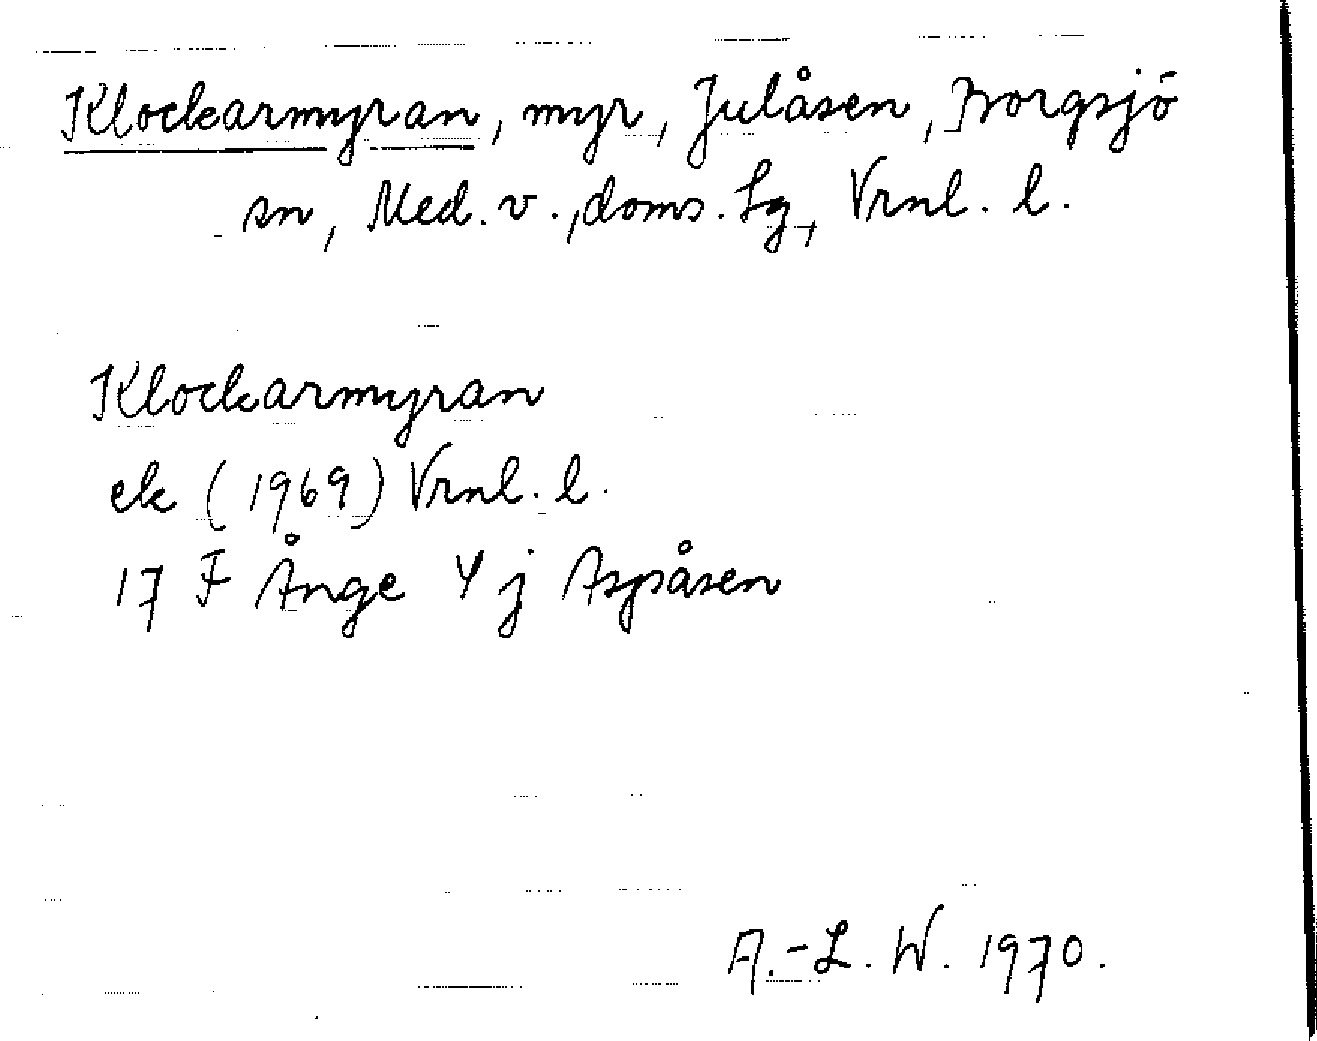 Klockarmyran, myr, Julåsen, Borgsjö
sn, Med. v., doms. lg, Vrnl. l.
Klockarmyran
ek (1969) Vrnl. l.
17 F Ånge 4 j Aspåsen
A.-L. W. 1970.